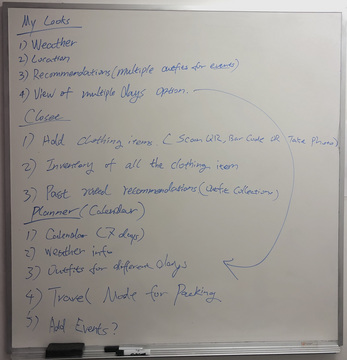 My Looks
1) Weather
2) Location
3) Recommendations (multiple outfits for events)
4) View of multiple days option.
Closet
1) Add clothing items. (Scan QR, Bar Code or Take Photo).
2) Inventory of all the clothing item
3) Past recommendations (Outfit Collections)
Planner (Calendar)
1) Calendar (7 days)
2) Weather info
3) Outfits for different days
4) Travel Mode for Packing
5) Add Events?